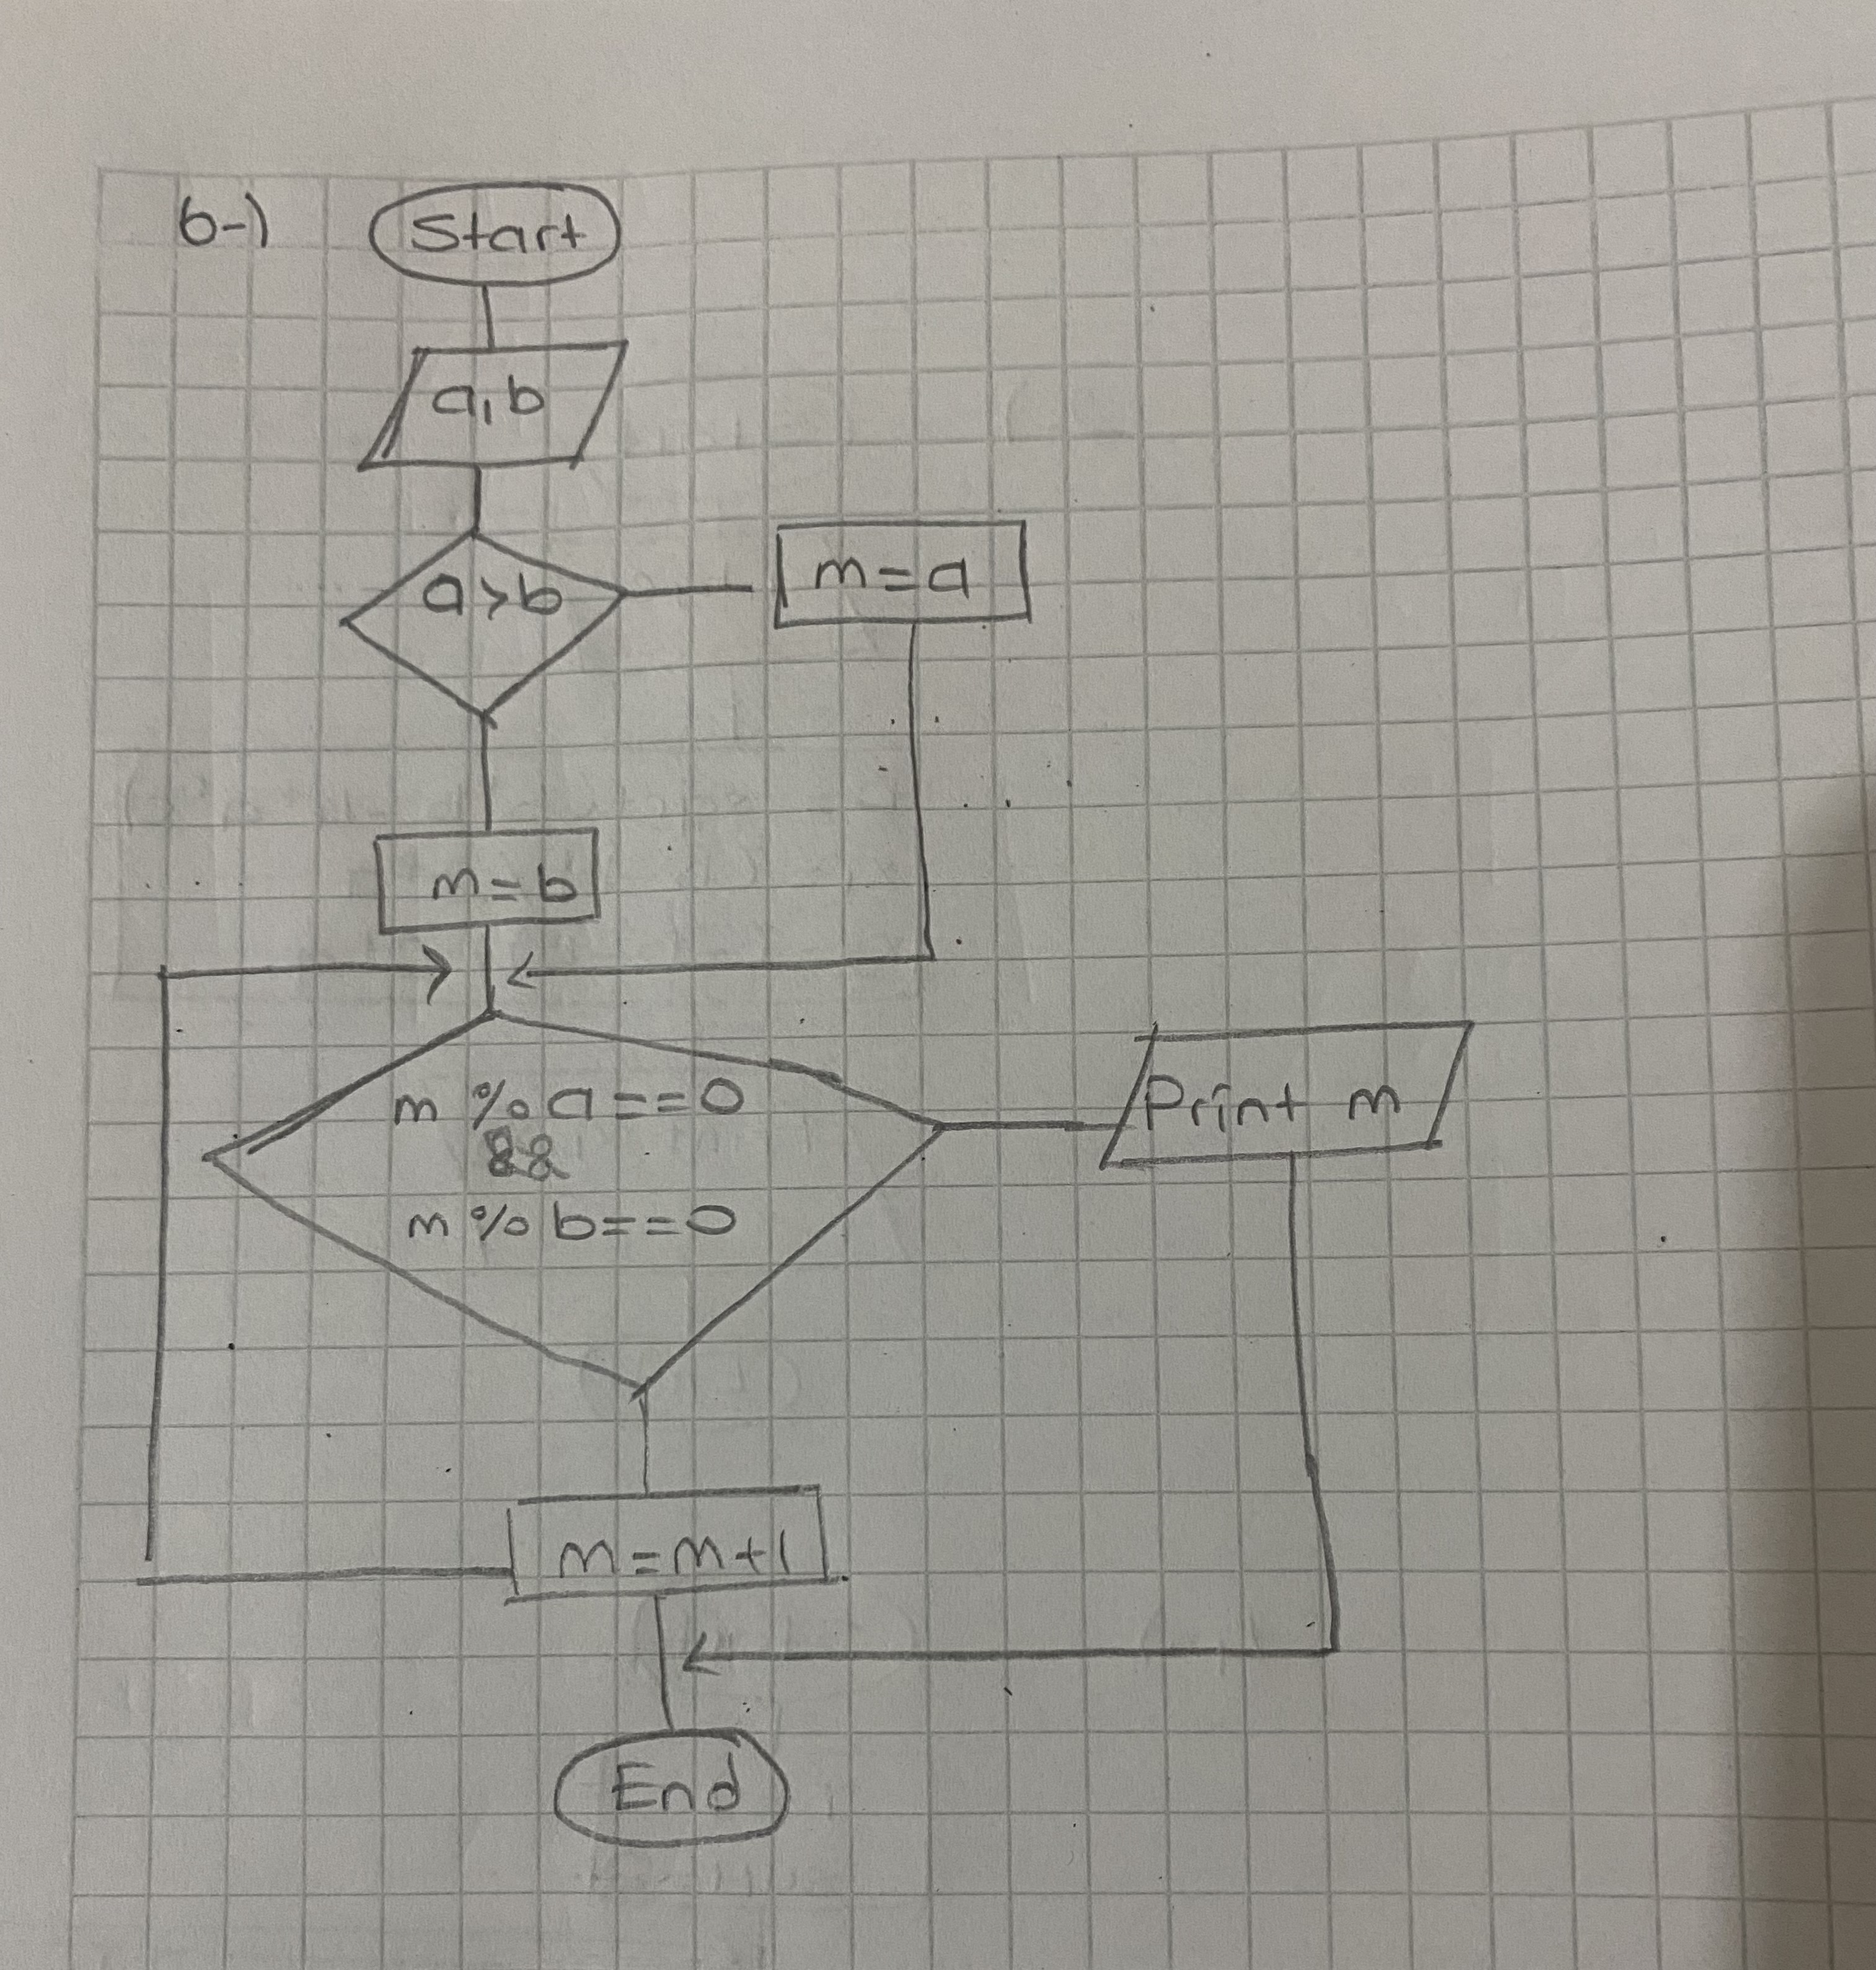 6-)
Start
a,b
a>b
m=a
m=b
m%a==0
&&
m%b==0
Print m
m=m+1
End